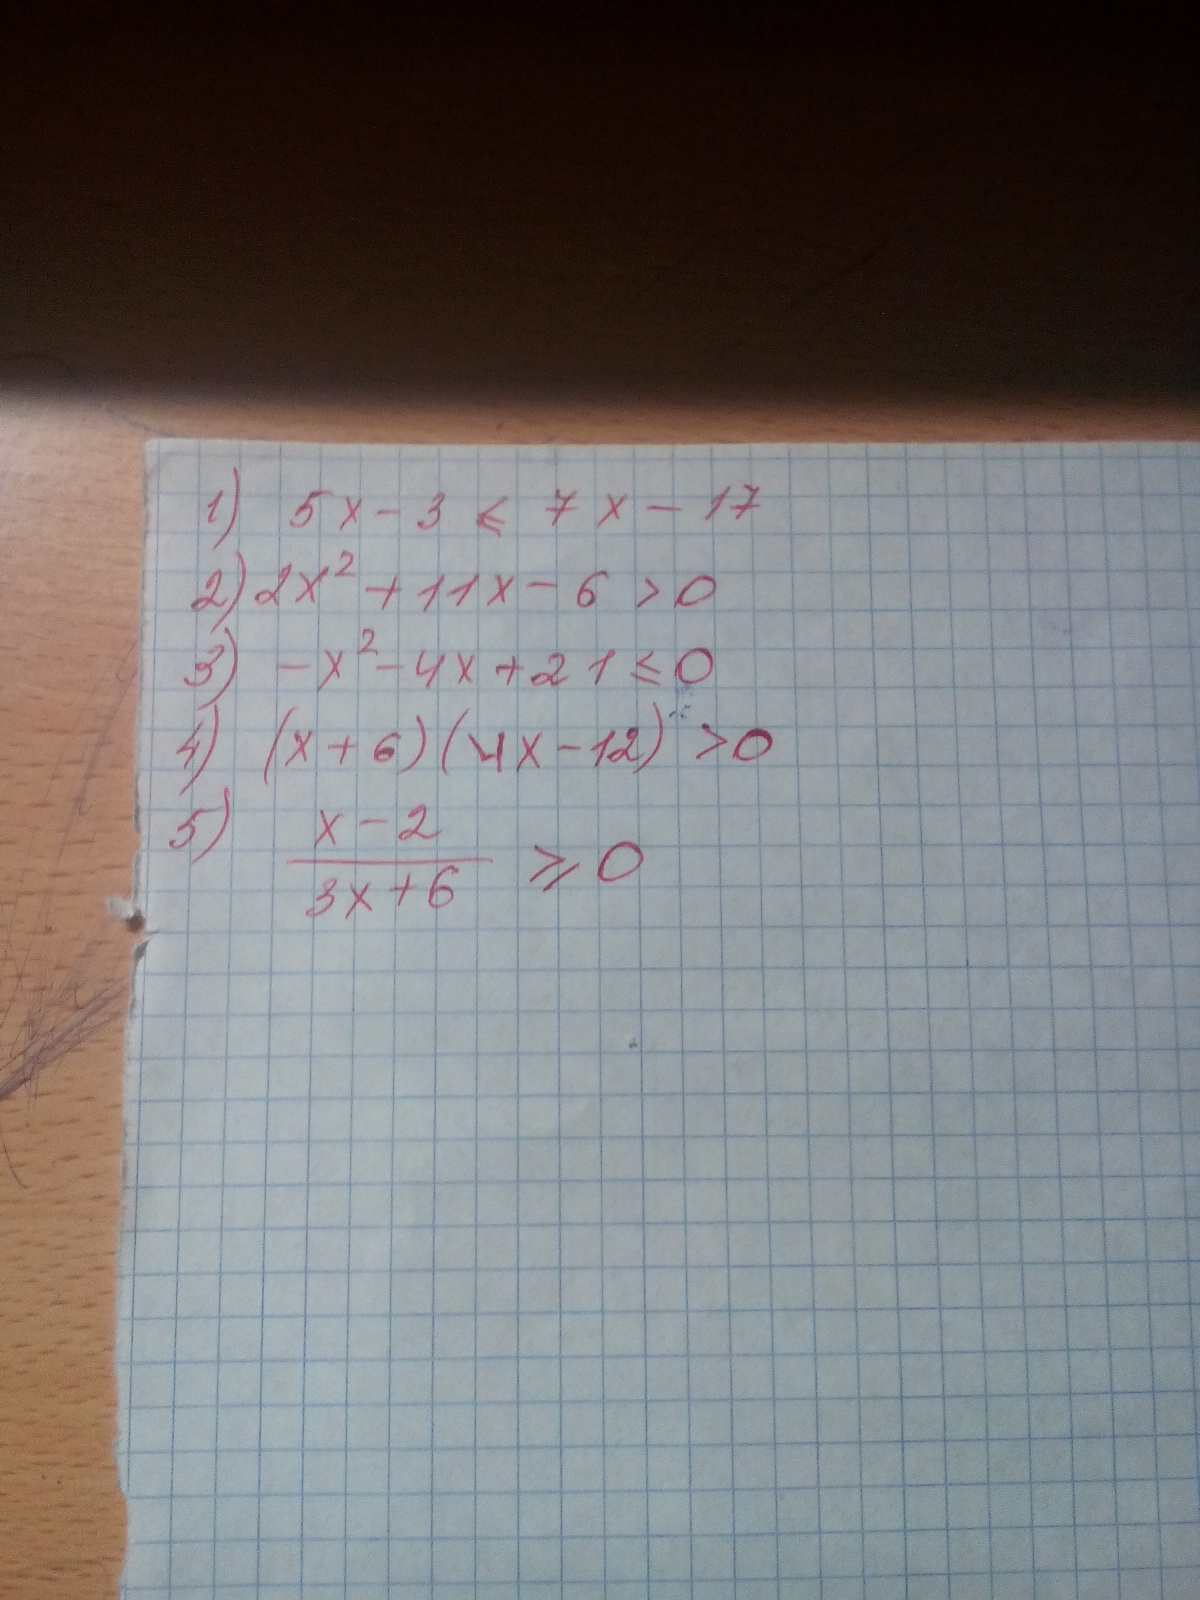 1) 5x - 3 ⩽ 7x - 17
2) 2x² + 11x - 6 > 0
3) -x² - 4x + 21 ⩽ 0
4) (x + 6)(4x - 12) > 0
5) (x - 2)/(3x + 6) ⩾ 0